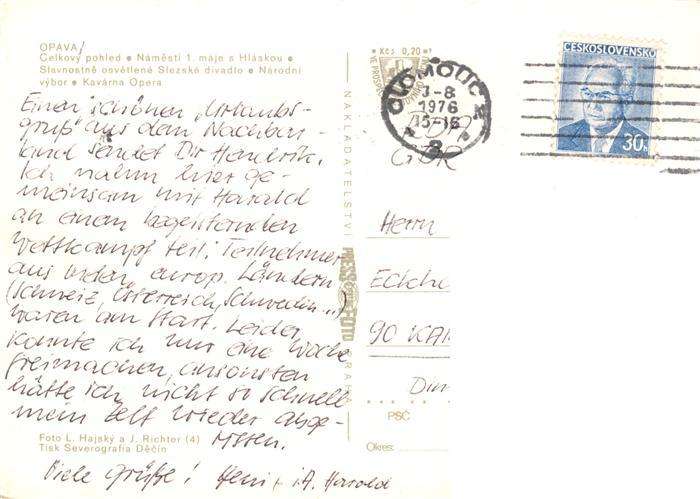 OPAVA
Celkový pohled • Náměstí 1. máje s Hláskou •
Slavnostně osvětlené Slezské divadlo • Národní
výbor • Kavárna Opera
Einen schönen „Urlaubs-
gruß“ aus dem Nachbar-
land sendet Dir Hendrik.
Ich nahm hier ge-
meinsam mit Harald
an einem begeisternden
Wettkampf teil. Teilnehmer
aus vielen europ. Ländern
(Schweiz, Österreich, Schweden...)
waren am Start. Leider
konnte ich nur eine Woche
freimachen, ansonsten
hätte ich nicht so schnell
mein Zelt wieder abge-
rissen.
Viele Grüße! Heni + i.A. Harald
Foto L. Hajský a J. Richter (4)
Tisk Severografia Děčín
NAKLADATELSTVÍ
PRESSFOTO
PRAHA
Kčs 0,20
OLOMOUC 2
3-8
1976
15-16
ČESKOSLOVENSKO
30h
DDR
GDR
Herrn
90
PSČ
Okres: